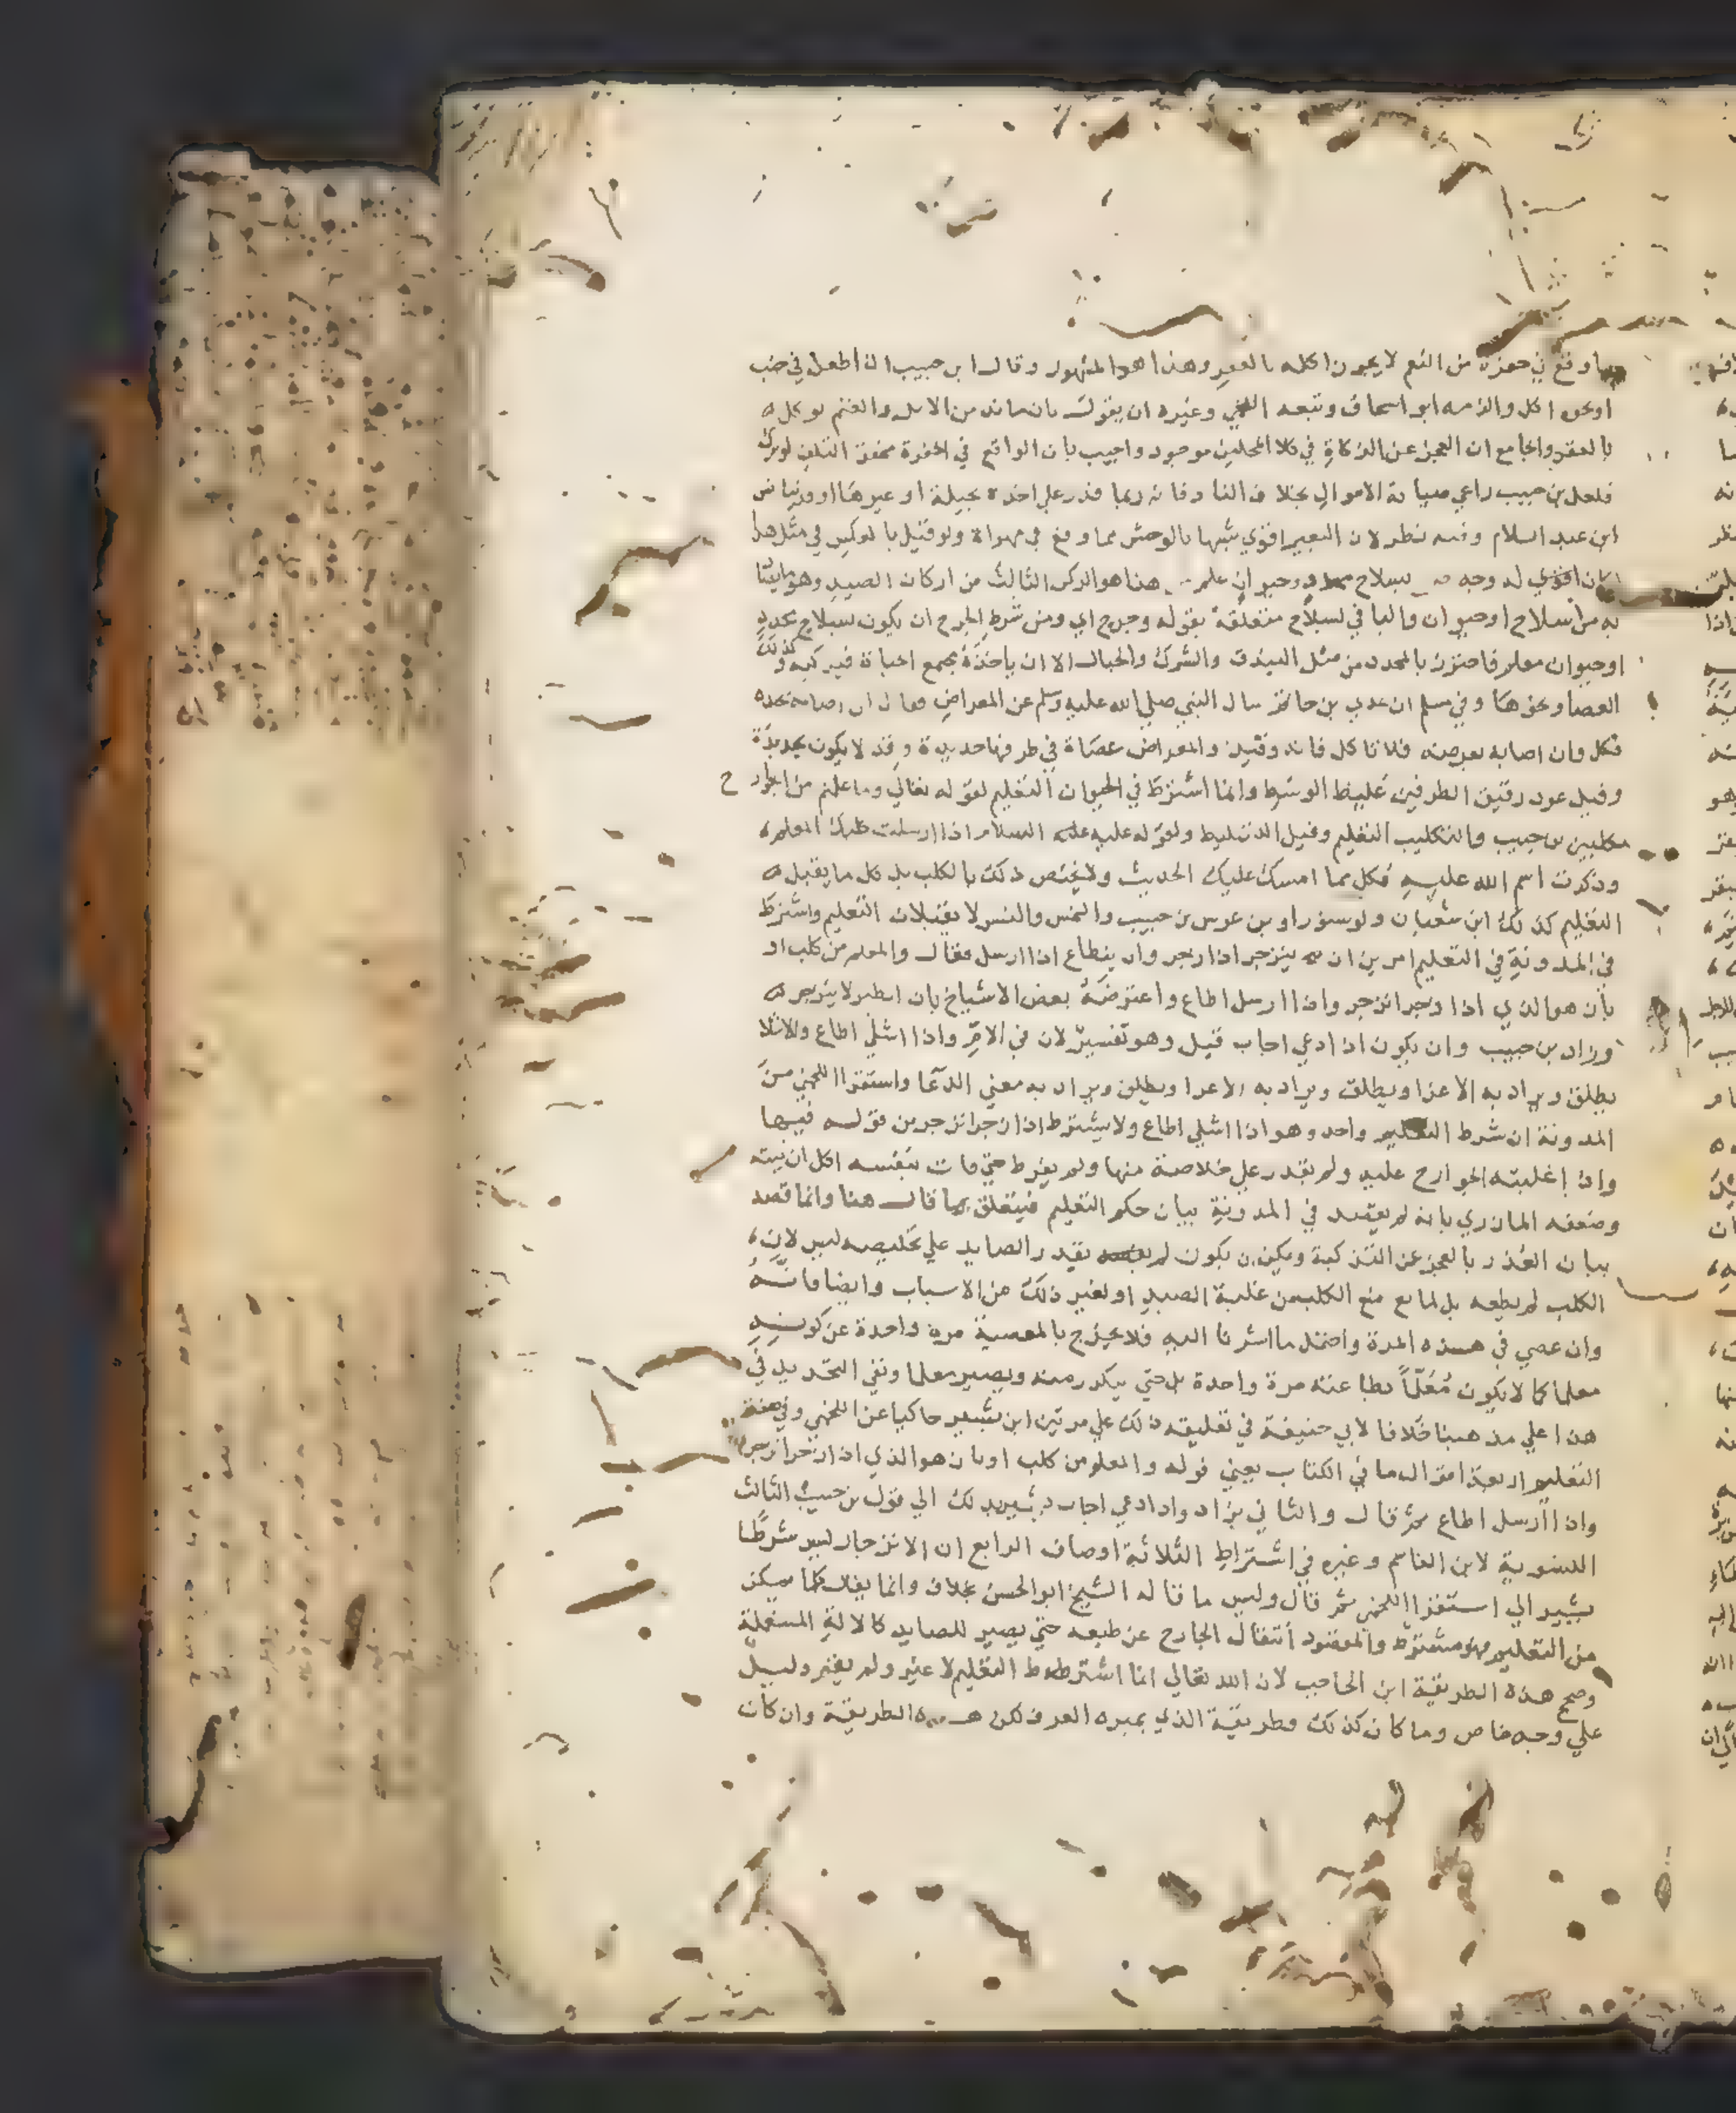 ما وقع في حفرة من النعم لا يجوز اكله بالعقر وهذا هو المشهور وقال ابن حبيب ان اطعن في جنب
او نحوه اكل والزمه ابو اسحاق وتبعه اللخمي وغيره ان يقول بان ما ند من الابل والغنم يوكل
بالعقر والجامع ان العجز عن الذكاة في كلا المحلين موجود واجيب بان الواقع في الحفرة محقق التلف لو ترك
فلعل بن حبيب راعي صيانة الاموال بخلاف الناد فانه ربما قدر علي اخذه بحيلة او غيرها
ابن عبد السلام وفيه نظر لان البعير اقوي شبها بالوحش مما وقع في مهواة ولو قيل بالعكس في مثل هذا
كان اقوي له وجه بسلاح وحيوان علم هذا هو الركن الثالث من اركان الصيد وهو
به من سلاح او حيوان والبا في بسلاح متعلقة بقوله وجرح اي ومن شرط الجرح ان يكون بسلاح محدد
او حيوان معلم فاحترز بالمحدد من مثل البندق والشرك والحبال الا ان ياخذه مجمع الحياة فيذكيه وكذلك
العصا ونحوها وفي مسلم ان عدي بن حاتم سال النبي صلي الله عليه وسلم عن المعراض فقال ان اصاب بحده
فكل وان اصابه بعرضه فلا تاكل فانه وقيذ والمعراض عصاة في طرفها حديدة وقد لا يكون بحديدة
وقيل عود رقيق الطرفين غليظ الوسط وانما اشترط في الحيوان التعليم لقوله تعالي وما علمتم من الجوارح
مكلبين بن حبيب والتكليب التعليم وقيل التسليط ولقوله عليه عليه السلام اذا ارسلت كلبك المعلم
وذكرت اسم الله عليه فكل مما امسك عليك الحديث ولا يختص ذلك بالكلب بل كل ما يقبل
التعليم كذلك ابن شعبان ولو سنور او بن عرس بن حبيب والنمس والنسر لا يقبلان التعليم واشترط
في المدونة في التعليم امرين ان ينزجر اذا ازجر وان يطاع اذا ارسل فقال والمعلم من كلب او
باز هو الذي اذا زجر انزجر واذا ارسل اطاع واعترضه بعض الاشياخ بان الطير لا ينزجر
وزاد بن حبيب وان يكون اذا دعي اجاب قيل وهو تفسير لان في الام واذا اشلي اطاع والاشلا
يطلق ويراد به الاغرا ويطلق ويراد به الاغرا ويطلق ويراد به معني الدعا واستقرا اللخمي من
المدونة ان شرط التعليم واحد وهو اذا اشلي اطاع ولا يشترط اذا زجر انزجر من قوله فيها
واذا غلبته الجوارح عليه ولم يقدر علي خلاصه منها ولم يفرط حتي مات بنفسه اكل ان نيته
وضعفه المازري بانه لم يقصد في المدونة بيان حكم التعليم فيتعلق بما قال هنا وانما قصد
بيان العذر بالعجز عن التذكية ويمكن ان يكون لم يقدر الصايد علي تخليصه ليس لان
الكلب لم يطعه بل لمانع منع الكلب من غلبة الصيد او لغير ذلك من الاسباب وايضا فانه
وان عصي في هذه المرة واحتمل ما اشرنا اليه فلا يخرج بالمعصية مرة واحدة عن كونه
معلما كما لا يكون مُعَلَّماً بطاعته مرة واحدة بل حتي يتكرر منه ويصير معلما ونفي التحديد في
هذا علي مذهبنا خلافا لابي حنيفة في تعليقه ذلك علي مرتين ابن بشير حاكيا عن اللخمي وفي صفة
التعليم اربعة اقوال ما في الكتاب يعني قوله والمعلم من كلب او باز هو الذي اذا زجر انزجر
واذا ارسل اطاع ثم قال والثاني يزاد واذا دعي اجاب يشير بذلك الي قول بن حبيب الثالث
التسوية لابن القاسم وغيره في اشتراط الثلاثة اوصاف الرابع ان الانزجار ليس شرطا
يشير الي استقرا اللخمي ثم قال وليس ما قاله الشيخ ابو الحسن بخلاف وانما يقال كلما يمكن
من التعليم فهو مشترط والمقصود انتقال الجارح عن طبعه حتي يصير للصايد كالالة المستعملة
وصحح هذه الطريقة ابن الحاجب لان الله تعالي انما اشترط التعليم لا غير ولم يقم دليل
علي وجه خاص وما كان كذلك فطريقة الذي يميزه العرف لكن هذه الطريقة وان كان